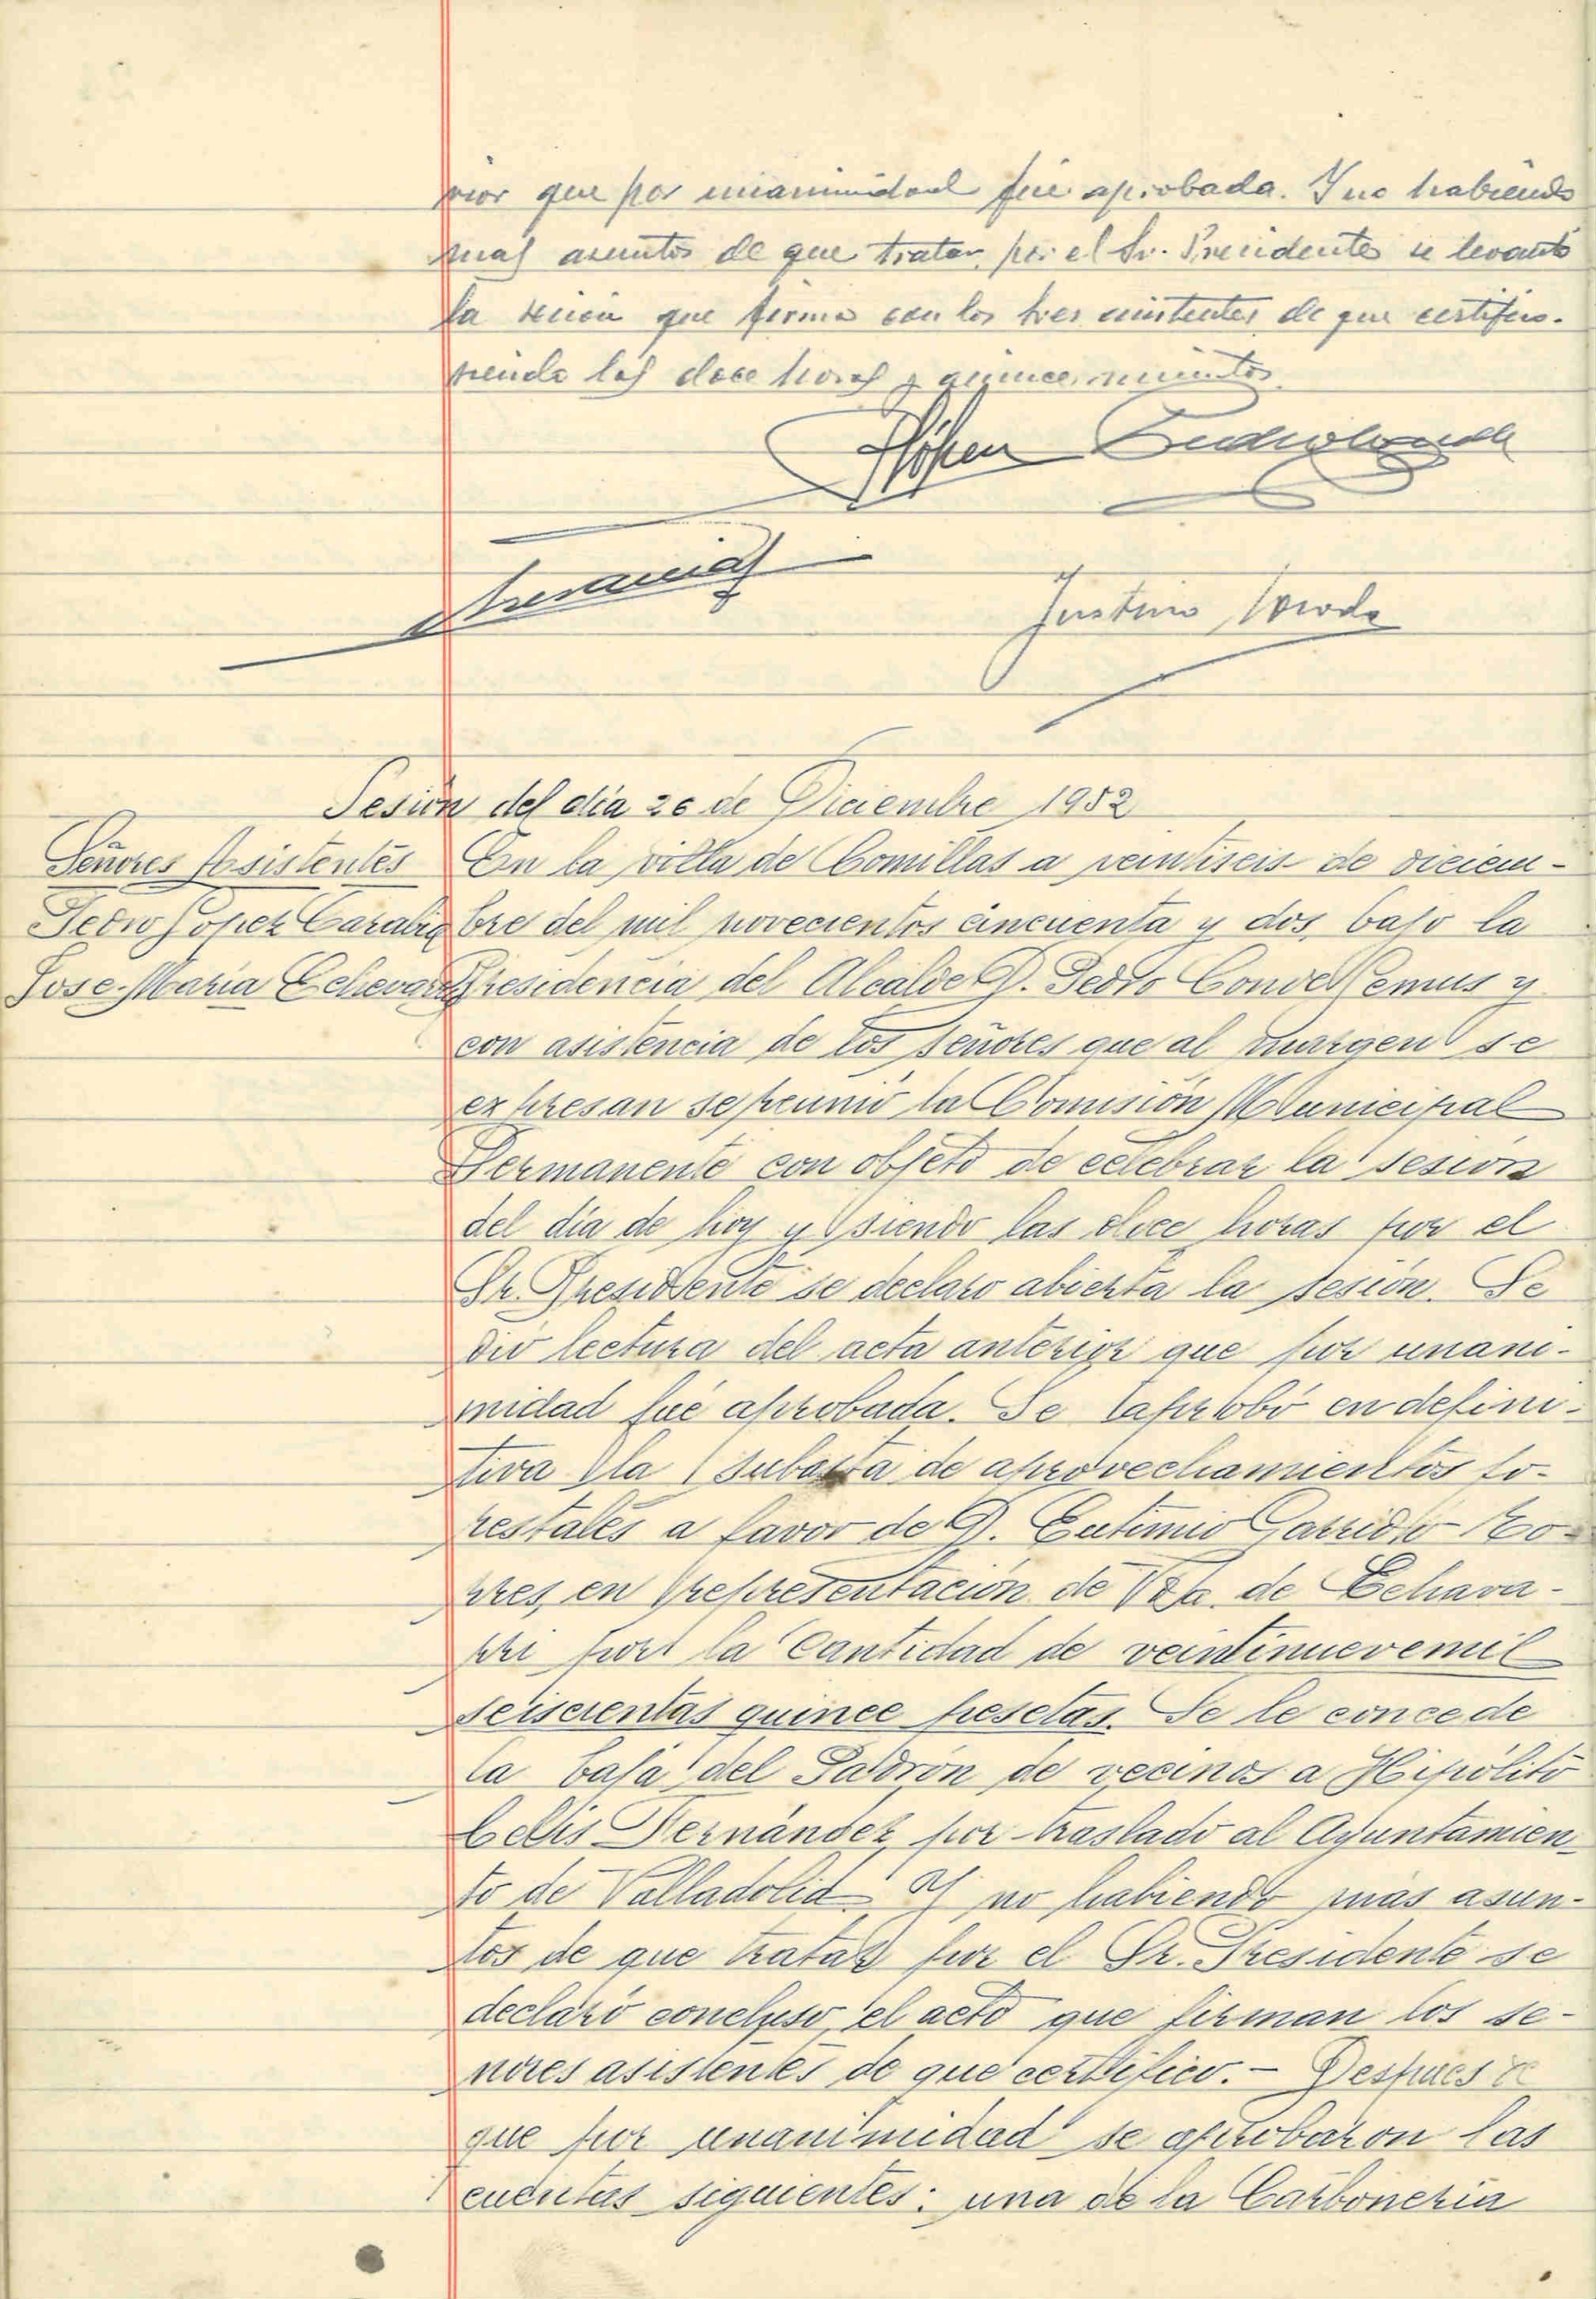 rior que por unanimidad fué aprobada. Y no habiendo
mas asuntos de que tratar, por el Sr. Presidente se levantó
la sesion que firma con los tres asistentes de que certifico.
siendo las doce horas y quince minutos
Justino
Sesión del día 26 de Diciembre 1952
Señores Asistentes
Pedro Lopez
Jose-Maria
En la villa de Comillas a veintiseis de diciem-
bre del mil novecientos cincuenta y dos, bajo la
Presidencia del Alcalde D. Pedro Conde Lemus y
con asistencia de los señores que al margen se
expresan se reunió la Comisión Municipal
Permanente con objeto de celebrar la sesión
del día de hoy y siendo las doce horas por el
Sr. Presidente se declaro abierta la sesión. Se
dio lectura del acta anterior que por unani-
midad fué aprobada. Se aprobó en defini-
tiva la subasta de aprovechamientos fo-
restales a favor de D. Eutimio Garrido
en representación de Vda. de Echava-
rri por la cantidad de veintinuevemil
seiscientas quince pesetas. Se le concede
la baja del Padrón de vecinos a Hipólito
Celis Fernández, por traslado al Ayuntamien-
to de Valladolid. Y no habiendo más asun-
tos de que tratar por el Sr. Presidente se
declaró concluso el acto que firman los se-
nores asistentes de que certifico.- Despues de
que por unanimidad se aprobaron las
cuentas siguientes: una de la Carboneria